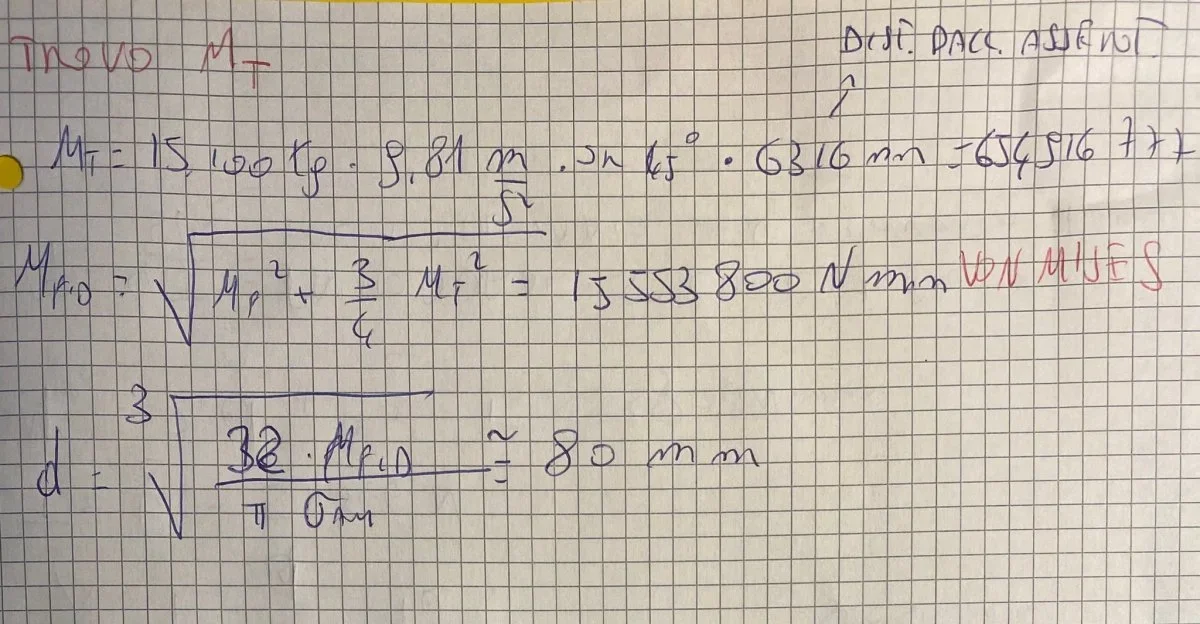 TROVO M_T
DIST. DALL'ASSE NOT.
M_T = 15,100 Kg · 9,81 m/s² · sn 45° · 6316 mm = 654916 777
M_F,ID = √(M_F² + 3/4 M_T²) = 15553800 N mm VON MISES
d = ∛(32 · M_F,ID / π σ_AM) ≅ 80 mm